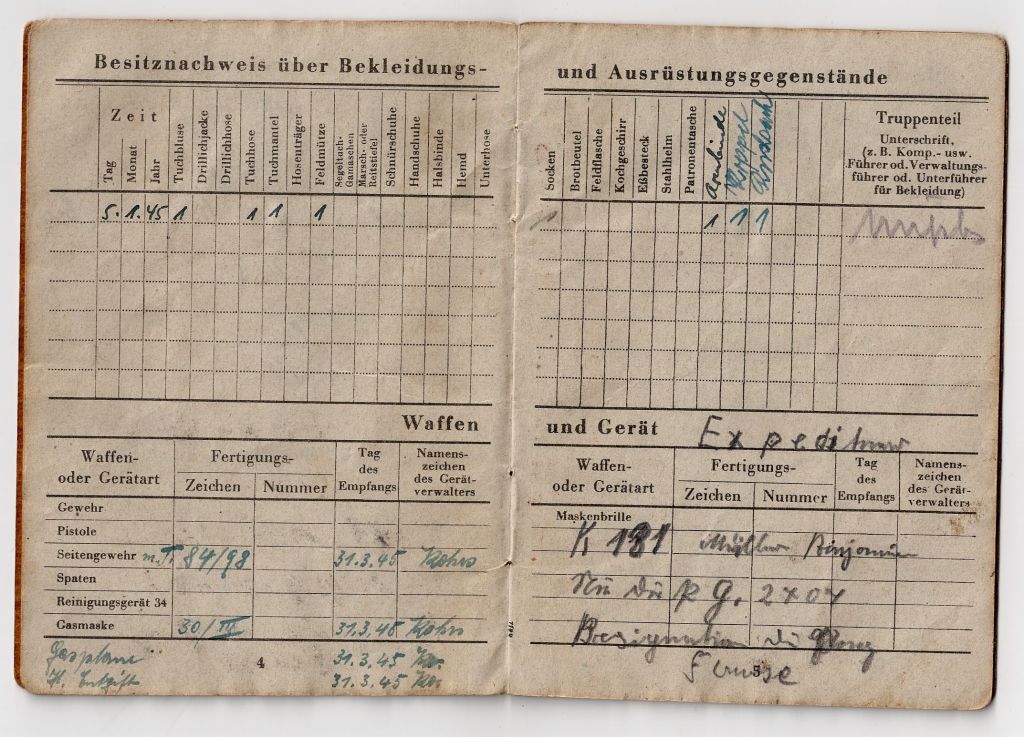 Besitznachweis über Bekleidungs-
Zeit
Tag Monat Jahr Tuchbluse Drillichjacke Drillichhose Tuchhose Tuchmantel Hosenträger Feldmütze Segeltuch- Gamaschen Marsch- oder Reitstiefel Schnürschuhe Handschuhe Halsbinde Hemd Unterhose
5. 1. 45 1 1 1 1
Waffen
Waffen- oder Geräteart Fertigungs- Zeichen Nummer Tag des Empfangs Namens- zeichen des Gerät- verwalters
Gewehr
Pistole
Seitengewehr m.T. 84/98 31.3.45
Spaten
Reinigungsgerät 34
Gasmaske 30/III 31.3.45
Gasplane 31.3.45
31.3.45
4
und Ausrüstungsgegenstände
Socken Brotbeutel Feldflasche Kochgeschirr Eßbesteck Stahlhelm Patronentasche Armbinde Koppel
Truppenteil
Unterschrift,
(z. B. Komp.- usw.
Führer od. Verwaltungs-
führer od. Unterführer
für Bekleidung)
1 1 1 1
und Gerät
Waffen- oder Geräteart Fertigungs- Zeichen Nummer Tag des Empfangs Namens- zeichen des Gerät- verwalters
Maskenbrille
K 181
5